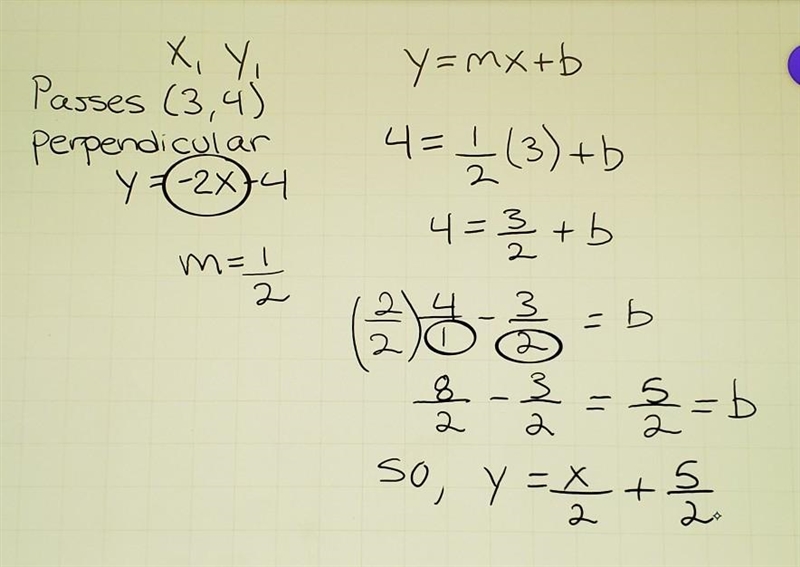 x₁ y₁
Passes (3,4)
perpendicular
y = -2x - 4
m = 1/2
y = mx + b
4 = 1/2 (3) + b
4 = 3/2 + b
(2/2) 4/1 - 3/2 = b
8/2 - 3/2 = 5/2 = b
so, y = x/2 + 5/2.